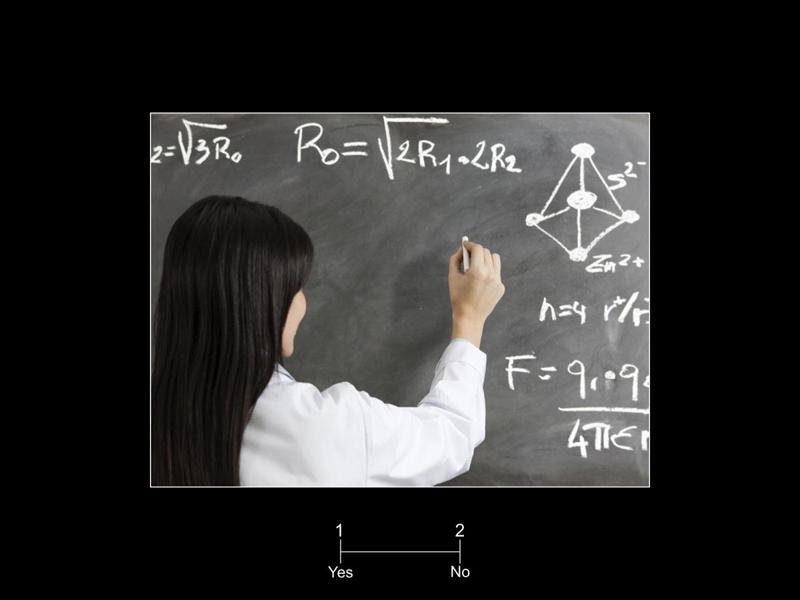 2=√3R₀
R₀=√2R₁·2R₂
S²⁻
Zn²⁺
n=4 r⁺/r⁻
F= q₁·q₂
4πε
1 2
Yes No